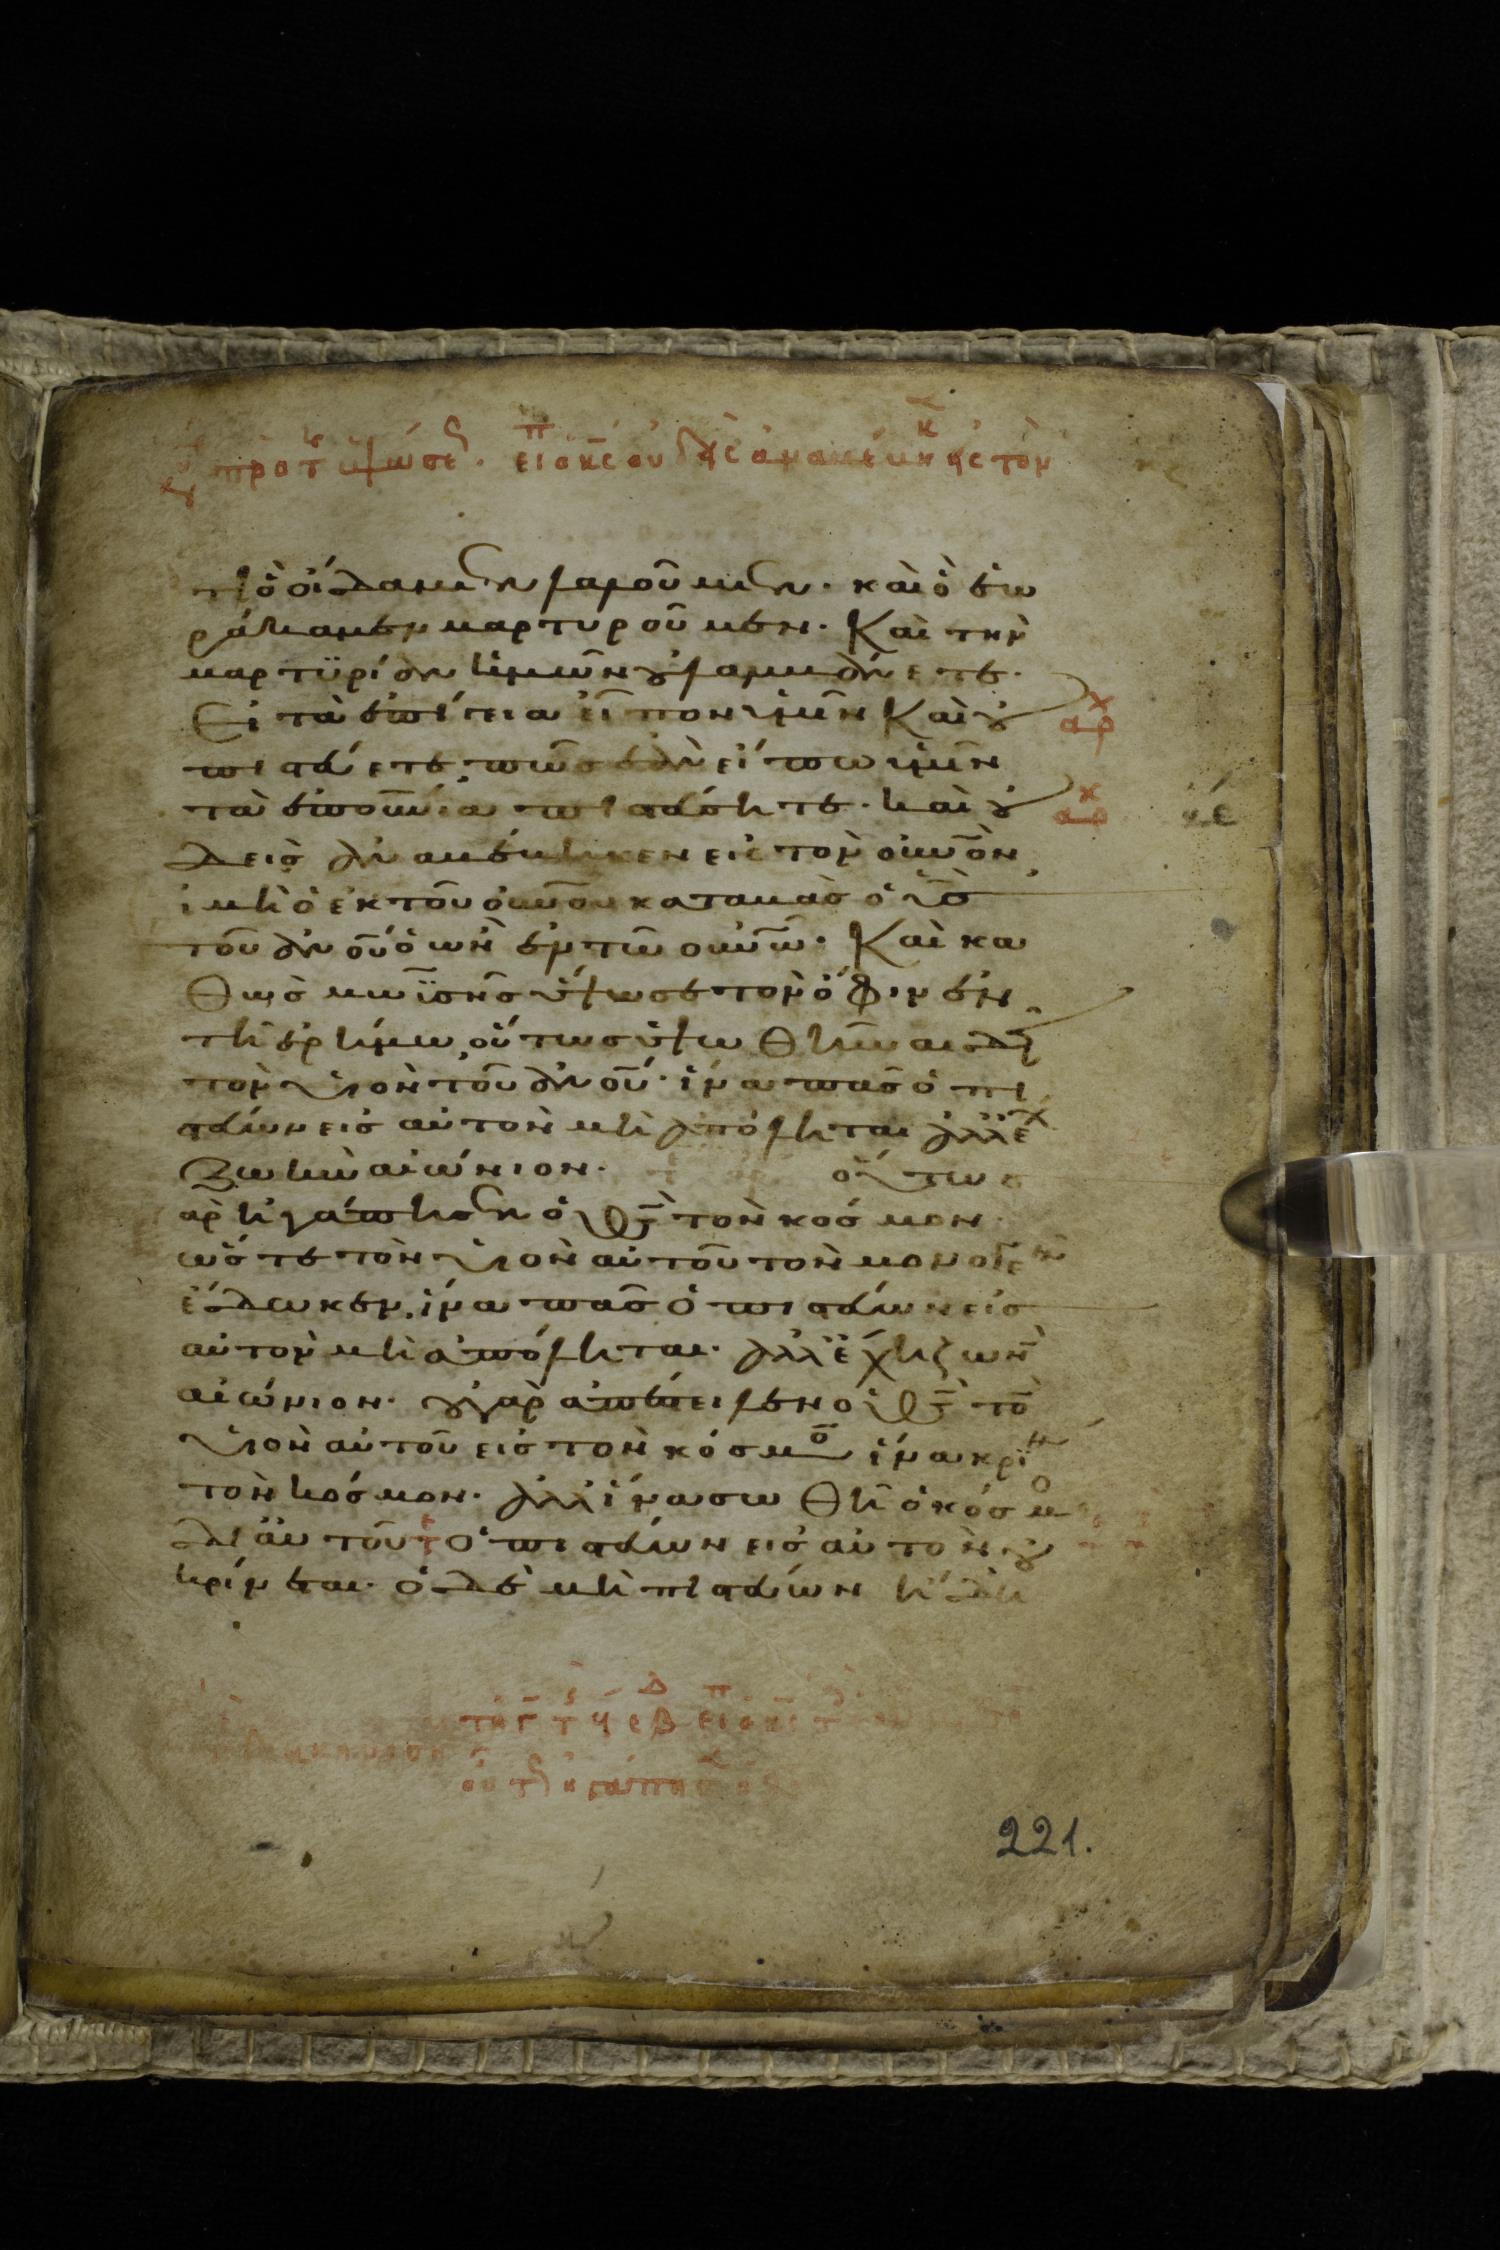 προ τ υψωσε. ει ο κς ουδεις αναβέβηκεν εις τον
τι ὃ οἴδαμεν λαλοῦμεν. καὶ ὃ ἑω
ράκαμεν μαρτυροῦμεν. Καὶ τὴν
μαρτϋρίαν ἡμῶν οὐ λαμβάνετε.
Εἰ τὰ ἐπίγεια εἶπον ὑμῖν Καὶ οὐ
αρχ
πιστεύετε, πῶς ἐὰν εἴπω ὑμῖν
τὰ ἐπουνία πιστεύσητε. καὶ οὐ
αρχ
κε
δεὶς ἀναβέβηκεν εἰς τὸν οὐνὸν
εἰ μὴ ὁ ἐκ τοῦ οὐνοῦ καταβὰς ὁ υἱὸς
τοῦ ἀνοῦ ὁ ὢν ἐν τῶ οὐνῶ. Καὶ κα
θὼς μωϊσῆς ὕψωσε τὸν ὄφιν ἐν
τῆ ἐρήμω, οὕτως ὑψωθῆναι δεῖ
τὸν υἱὸν τοῦ ἀνοῦ. ἵνα πᾶς ὁ πι
στεύων εἰς αὐτὸν μὴ ἀπόληται ἀλλ ἔχ
ζωὴν αἰώνιον. οὕτως
γὰρ ἠγάπησεν ὁ θς τὸν κόσμον.
ὥστε τὸν υἱὸν αὐτοῦ τὸν μονογεν
ἔδωκεν, ἵνα πᾶς ὁ πιστεύων εἰς
αὐτὸν μὴ ἀπόληται. ἀλλ ἔχη ζωὴν
αἰώνιον. οὐ γὰρ ἀπέστειλεν ὁ θς τὸ
υἱὸν αὐτοῦ εἰς τὸν κόσμο ἵνα κρί
τὸν κόσμον. ἀλλ ἵνα σωθῆ ὁ κόσμο
δι αὐτοῦ ὁ πιστεύων εἰς αὐτὸν οὐ
κρίνεται. ὁ δὲ μὴ πιστεύων ἤδη
ουτ ηγαπησ
221.